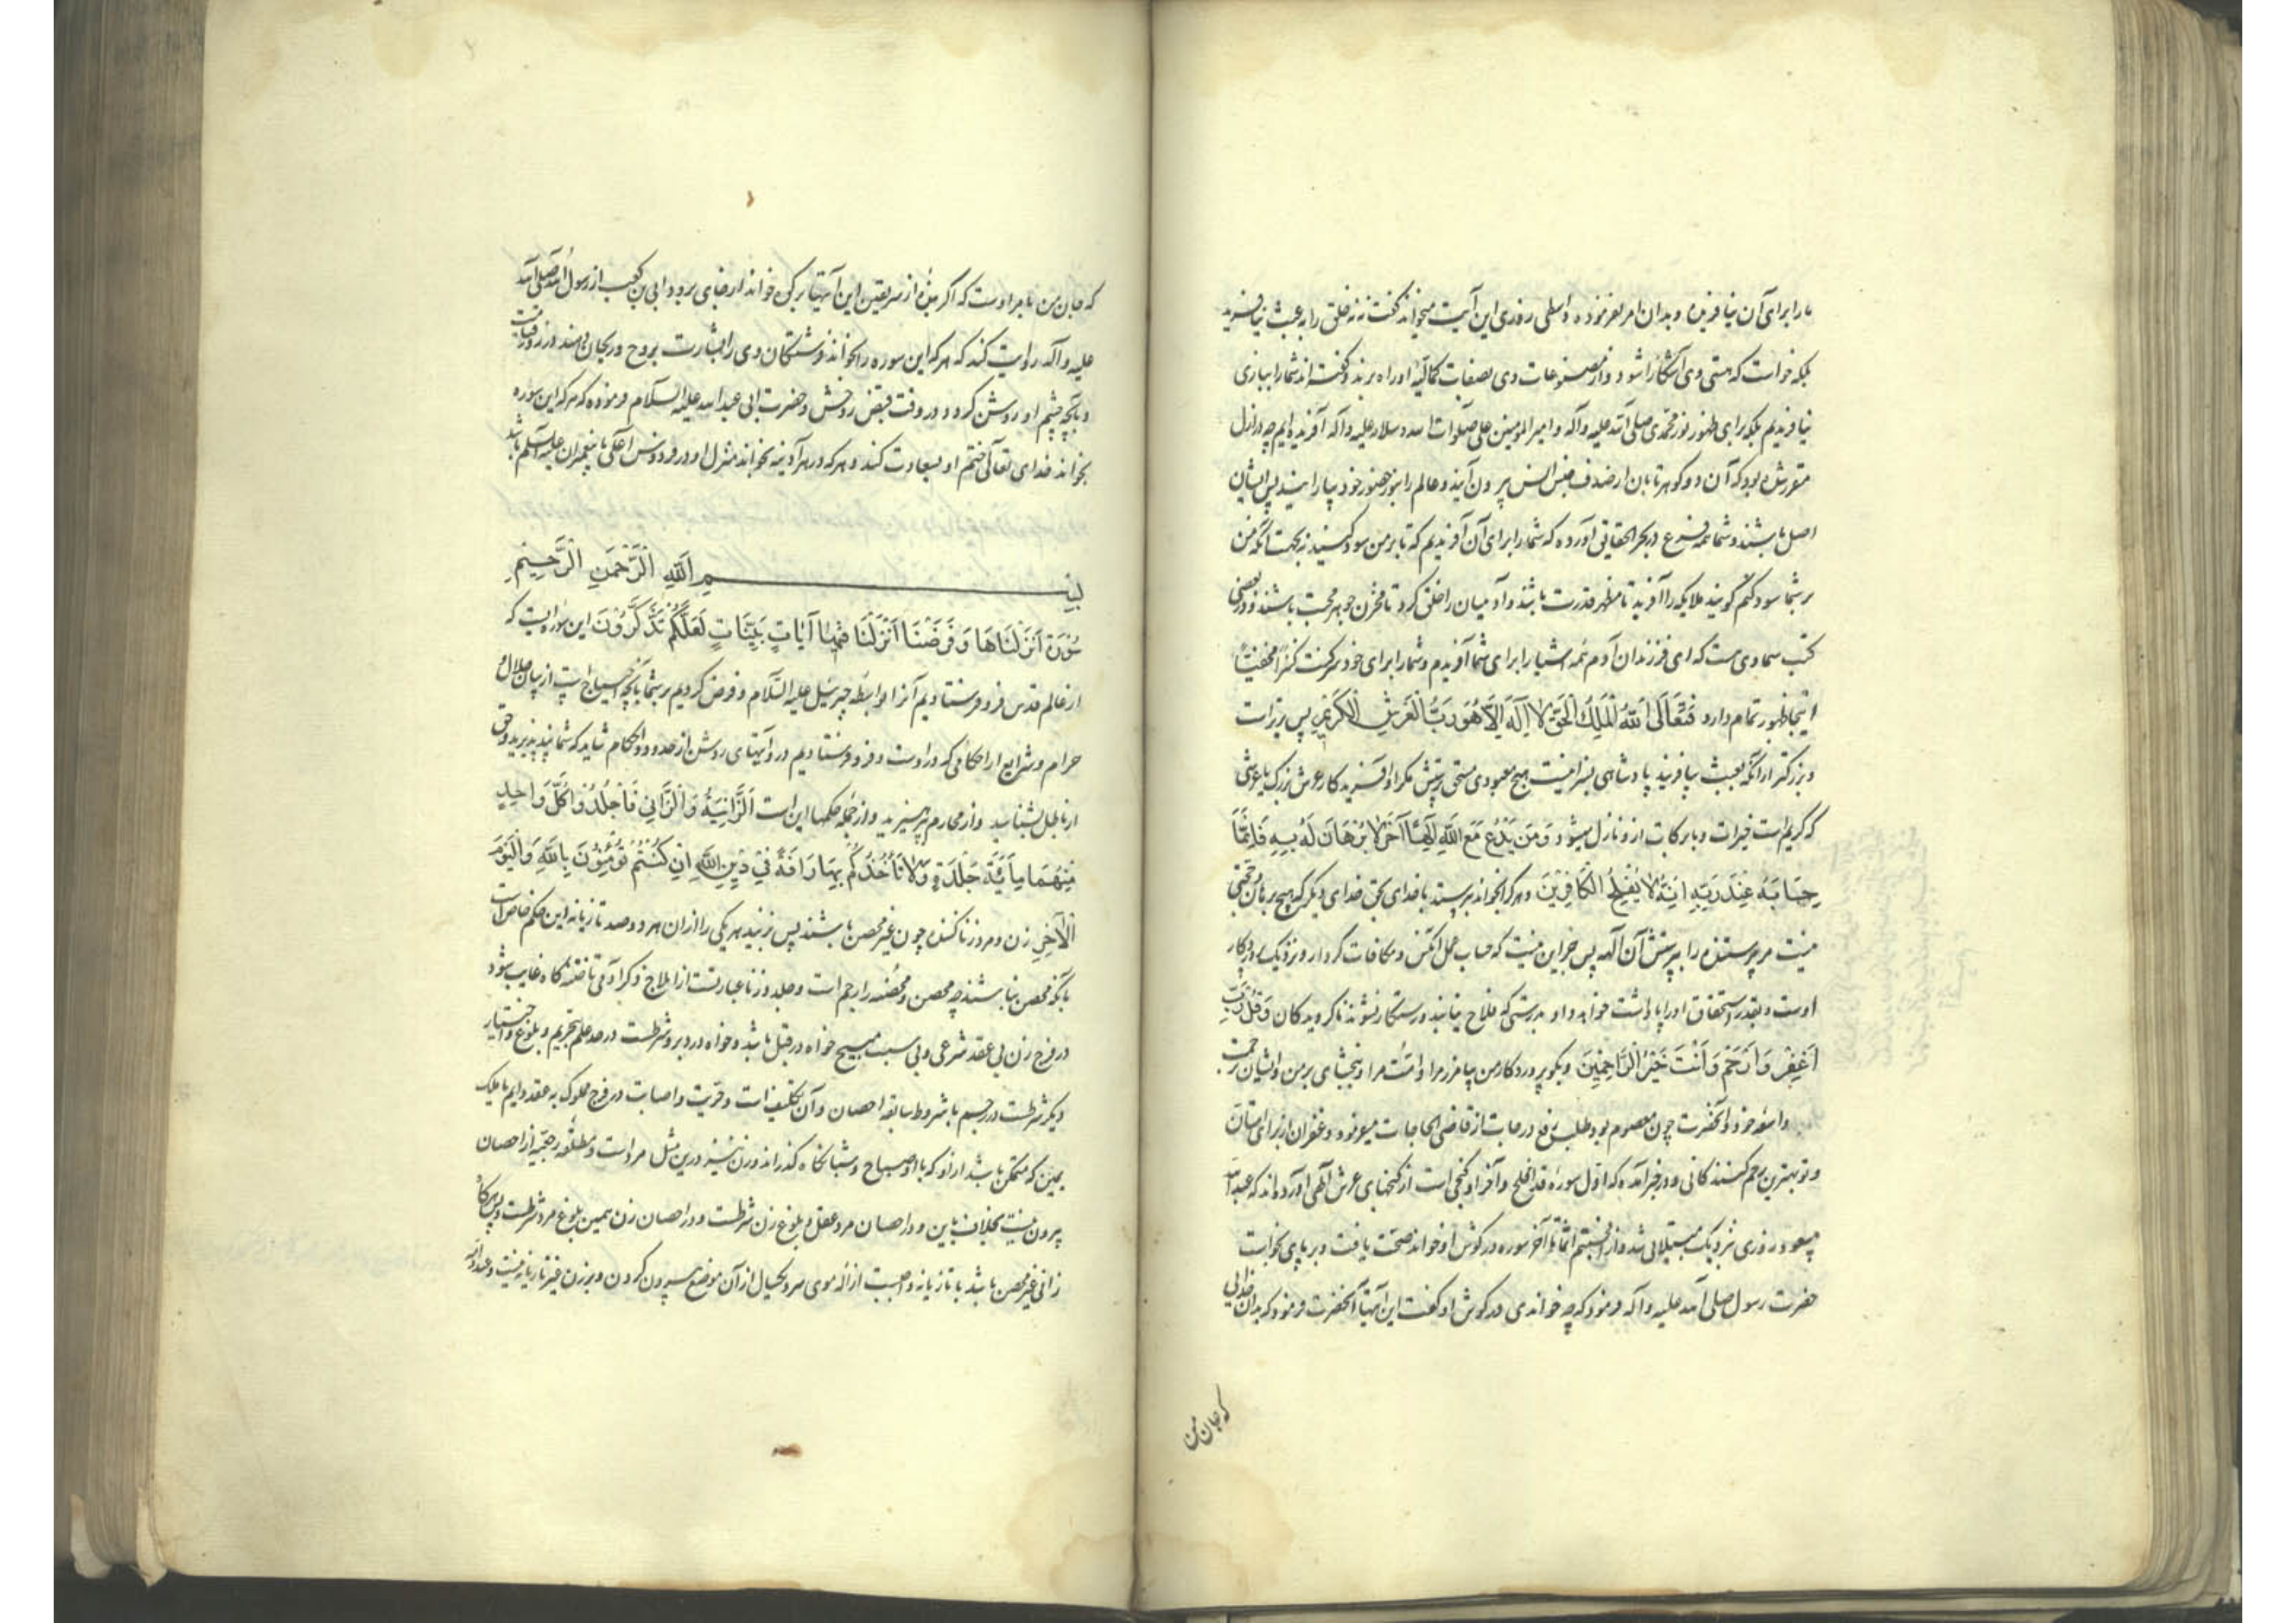 ما را برای آن نیافریده و بدان امر نفرموده واسطی روزی این آیت میخواند گفت نه نه خلق را به عبث نیافرید
بلکه خواست که هستی وی آشکارا شود و از مصنوعات وی بصفات کمالیه او راه برند و گفته اند شما را ببازی
نیافریدیم بلکه برای ظهور نور محمدی صلی الله علیه وآله و امیر المومنین علی صلوات الله وسلامه علیه وآله آفریده ایم چه در ازل
مقرر شده بود که آن دو گوهر تابان از صدف جنس انس بیرون آیند و عالم را بنور حضور خود بیارایند پس ایشان
اصل باشند و شما همه فرع در بحر الحقایق آورده که شما را برای آن آفریدیم که تا بر من سود کنید نه بجهت آنکه من
بر شما سود کنم گویند ملایکه را آفرید تا مظهر قدرت باشند و آدمیان را خلق کرد تا مخزن جوهر محبت باشند و در بعضی
کتب سماوی هست که ای فرزندان آدم همه اشیا را برای شما آفریدم و شما را برای خود سر کنت کنزا مخفیا
اینجا ظهور تمام دارد فَتَعَالَى اللهُ الْمَلِكُ الْحَقُّ لَا اِلَهَ اِلَّا هُوَ رَبُّ الْعَرْشِ الْكَرِيمِ پس برتر است
و بزرگتر از آنکه بعبث بیافریند پادشاهی بسزا نیست هیچ معبودی مستحق پرستش مگر او آفریدکار عرش بزرگ یا عرشی
که کریم است خیرات و برکات ازو نازل میشود وَمَنْ يَدْعُ مَعَ اللهِ اِلَهًا آخَرَ لَا بُرْهَانَ لَهُ بِهِ فَاِنَّمَا
حِسَابُهُ عِنْدَ رَبِّهِ اِنَّهُ لَا يُفْلِحُ الْكَافِرُونَ و هر که بخواند بپرستد با خدای بحق خدای دیگر که هیچ برهان و حجتی
نیست مر پرستنده را بپرستش آن اله پس جز این نیست که حساب عمل آنکس و مکافات کردار او نزدیک پروردکار
اوست و بقدر استحقاق او را پاداشت خواهد داد بدرستی که فلاح نیابند و رستکار نشوند ناکرویدکان وَقُلْ رَبِّ
اغْفِرْ وَارْحَمْ وَاَنْتَ خَيْرُ الرَّاحِمِينَ و بگو پروردکار من بیامرز مرا و امت مرا و ببخشای بر من و ایشان رحمت
واسعه خود و آنحضرت چون معصوم بود طلب رفع درجات از قاضی الحاجات مینمود و غفران از برای امتان
و تو بهترین رحم کنندکانی و در خبر آمده که اول سوره قد افلح و آخر او کنجی است از کنجهای عرش الهی آورده اند که عبد الله
مسعود روزی نزدیک مبتلایی شد و از افحسبتم انما تا آخر سوره در کوش او خواند صحت یافت و بر پای بخواست
حضرت رسول صلی الله علیه وآله فرمود که چه خواندی در کوش او گفت این آیتها آنحضرت فرمود که بدان خدایی
که جان من
که جان من بامر اوست که اگر بنده از سر یقین این آیتها بر کوه خواند از جای برود ابی بن کعب از رسول الله صلی الله
علیه وآله روایت کند که هر که این سوره را بخواند فرشتکان وی را بشارت بروح و ریحان دهند در روز قیامت
و بآنچه چشم او روشن کردد در وقت قبض روحش و حضرت ابی عبد الله علیه السلام فرموده که هر که این سوره
بخواند خدای تعالی ختم او بسعادت کند و هر که در هر آدینه بخواند منزل او در فردوس اعلی با پیغمبران علیهم السلم باشد
بِسْمِ اللهِ الرَّحْمَنِ الرَّحِيمِ
سُورَةٌ اَنْزَلْنَاهَا وَفَرَضْنَا اَنْزَلْنَا فِيهَا آيَاتٍ بَيِّنَاتٍ لَعَلَّكُمْ تَذَكَّرُونَ این سوره ایست که
از عالم قدس فرو فرستادیم آنرا بواسطه جبرئیل علیه السلام و فرض کردیم بر شما آنچه احتیاج است از بیان حلال و
حرام و شرایع از احکامی که در اوست و فرو فرستادیم درو آیتهای روشن از حدود و احکام شاید که شما پند پذیرید و حق
از باطل بشناسید و از محارم بپرهیزید و از جمله حکمها این است اَلزَّانِيَةُ وَالزَّانِي فَاجْلِدُوا كُلَّ وَاحِدٍ
مِنْهُمَا مِائَةَ جَلْدَةٍ وَلَا تَأْخُذْكُمْ بِهِمَا رَأْفَةٌ فِي دِينِ اللهِ اِنْ كُنْتُمْ تُؤْمِنُونَ بِاللهِ وَالْيَوْمِ
الْآخِرِ زن و مرد زنا کننده چون غیر محصن باشند پس بزنید هر یکی را از ان هر دو صد تازیانه این حکم خاص است
بآنکه محصن نباشند چه محصن و محصنه را رجم است و جلد و زنا عبارتست از ایلاج ذکر آدمی تا ختنه کاه غایب شود
در فرج زن بی عقد شرعی و بی سبب مبیح خواه در قبل باشد و خواه در دبر و شرطست در حد علم بتحریم و بلوغ و اختیار
دیکر شرطست در رجم با شروط سابقه احصان و آن تکلیف است و حریت و اصابت در فرج مملوک به عقد دایم یا ملک
یمین که متمکن باشد ازو که بامداد صباح و شبانکاه کذراند و زن نیز درین مثل مرد است و مطلقه رجعیه از احصان
بیرون نیست بخلاف باین و در احصان مرد عقل و بلوغ زن شرطست و در احصان زن همین بلوغ مرد شرطست و پس هرکاه
زانی غیر محصن باشد با تازیانه واجبست ازاله موی سر و یکسال از آن موضع بیرون کردن و بر زن غیر تازیانه نیست و عبد الله